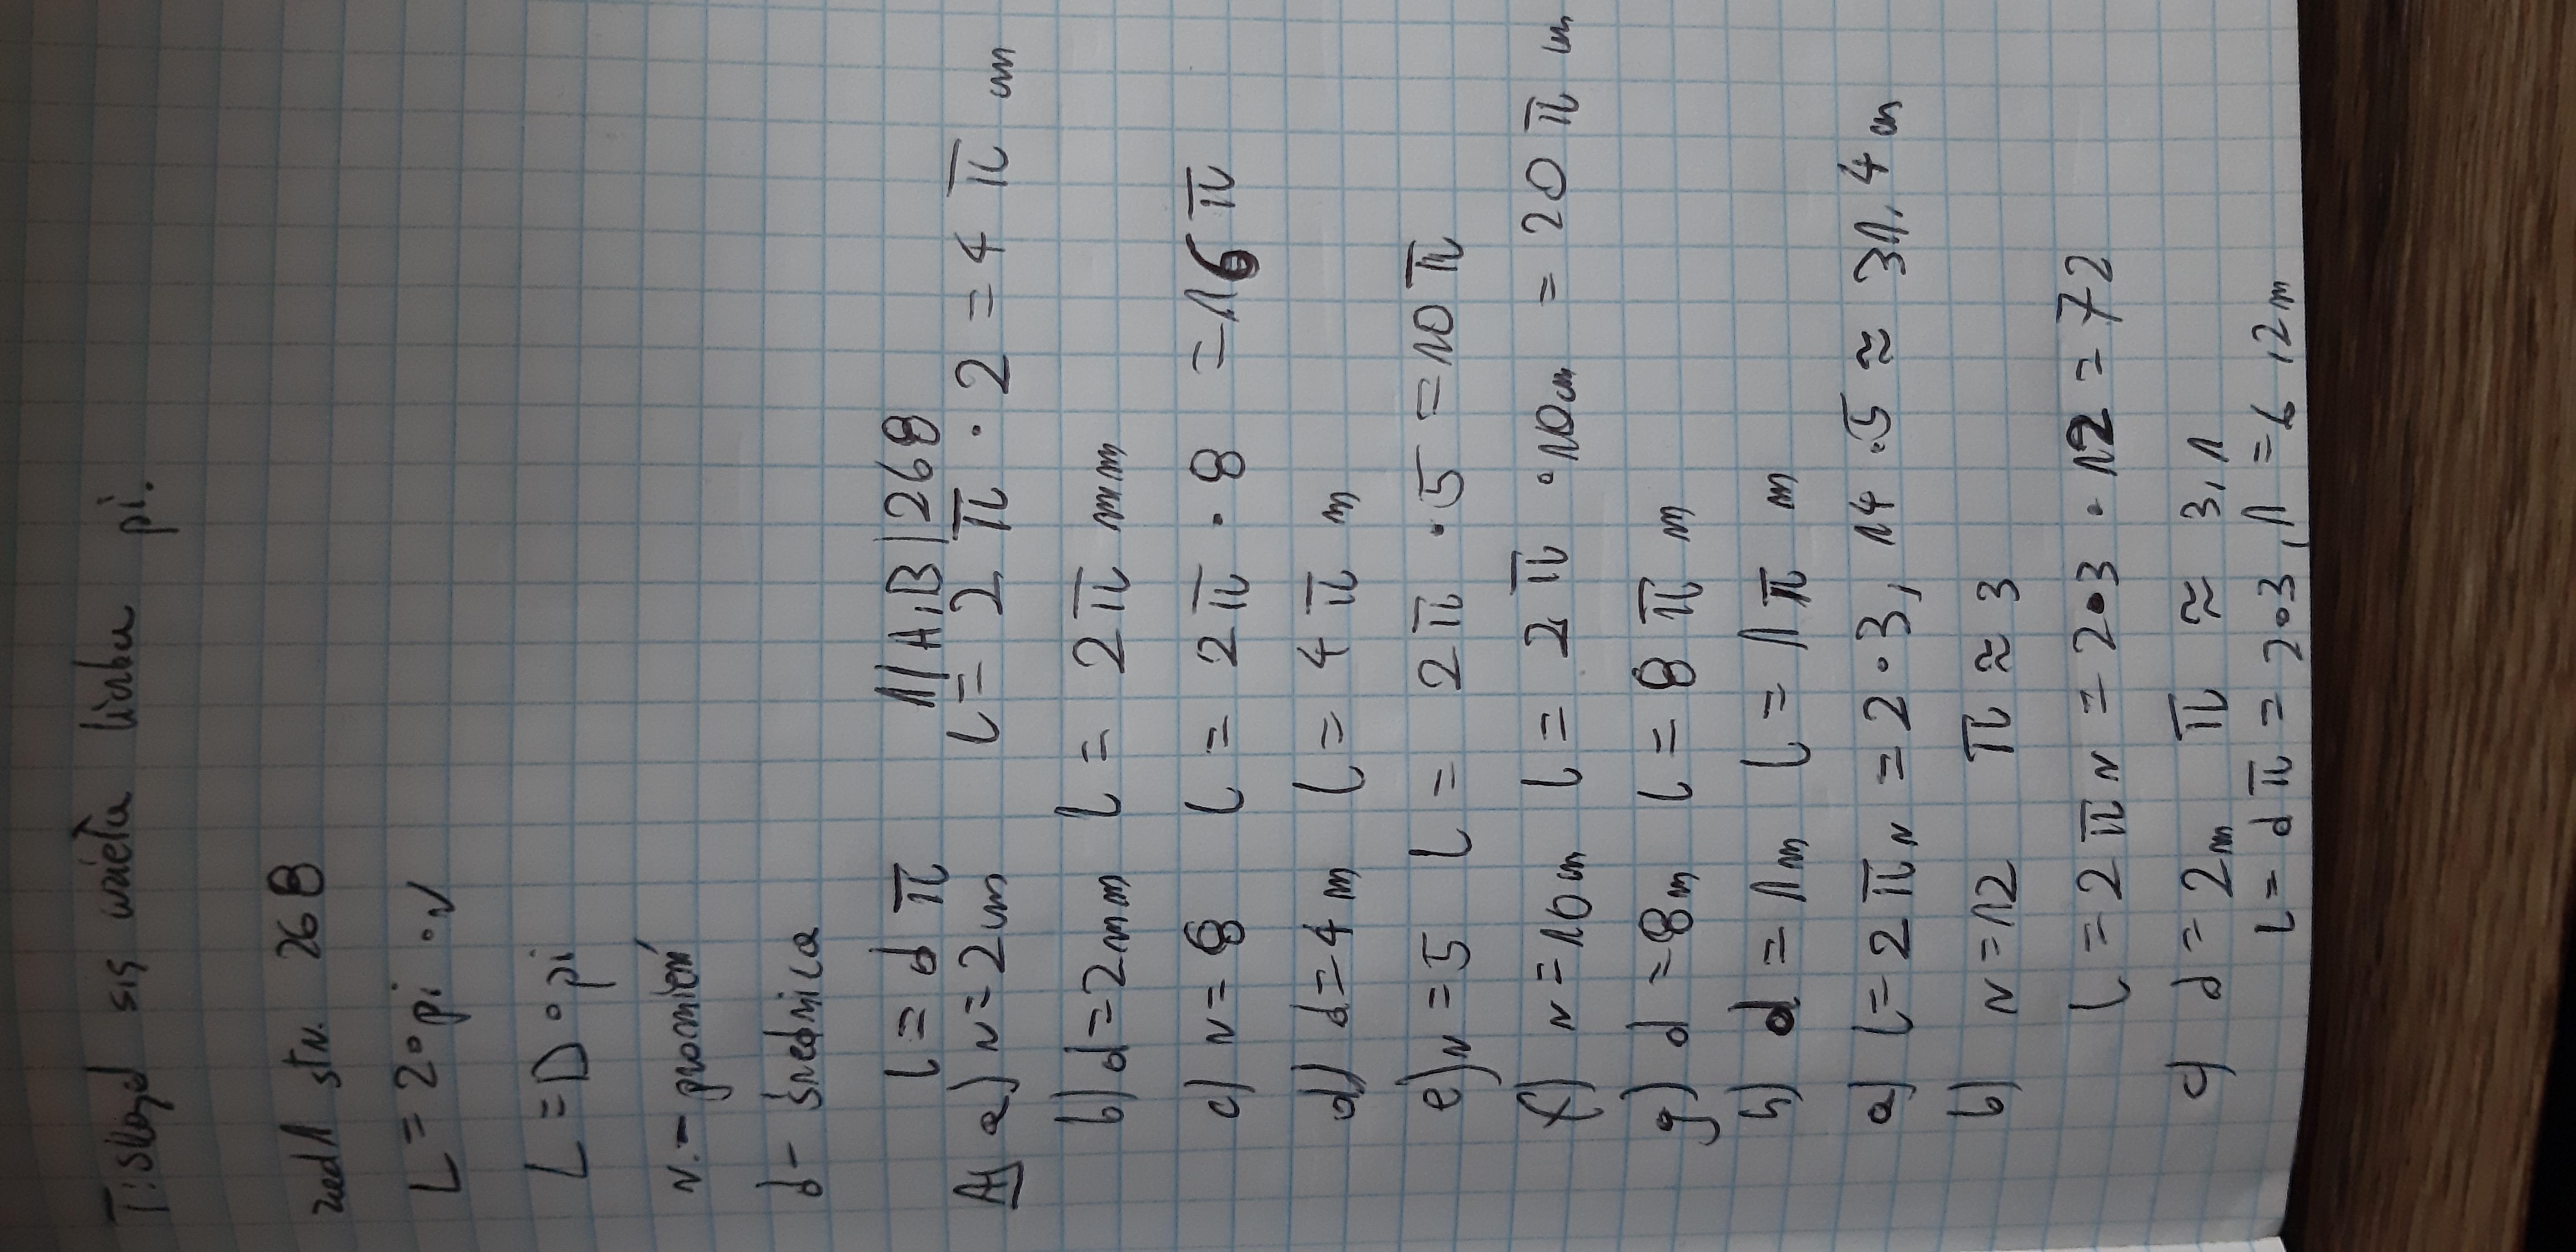 T: Skąd się wzięła liczba pi.
zad 1 str. 268
L = 2 · pi · r
L = D · pi
r - promień
d - średnica
L = d π 1/A,B/268
A) a) r = 2cm L = 2 π · 2 = 4 π cm
b) d = 2mm L = 2 π mm
c) r = 8 L = 2 π · 8 = 16 π
d) d = 4 m L = 4 π m
e) r = 5 L = 2 π · 5 = 10 π
f) r = 10m L = 2 π · 10m = 20 π m
g) d = 8m L = 8 π m
h) d = 1m L = 1 π m
a) L = 2 π r = 2 · 3,14 · 5 ≈ 31,4 m
b) r = 12 π ≈ 3
L = 2 π r = 2 · 3 · 12 = 72
c) d = 2m π ≈ 3,1
L = d π = 2 · 3,1 = 6,2m